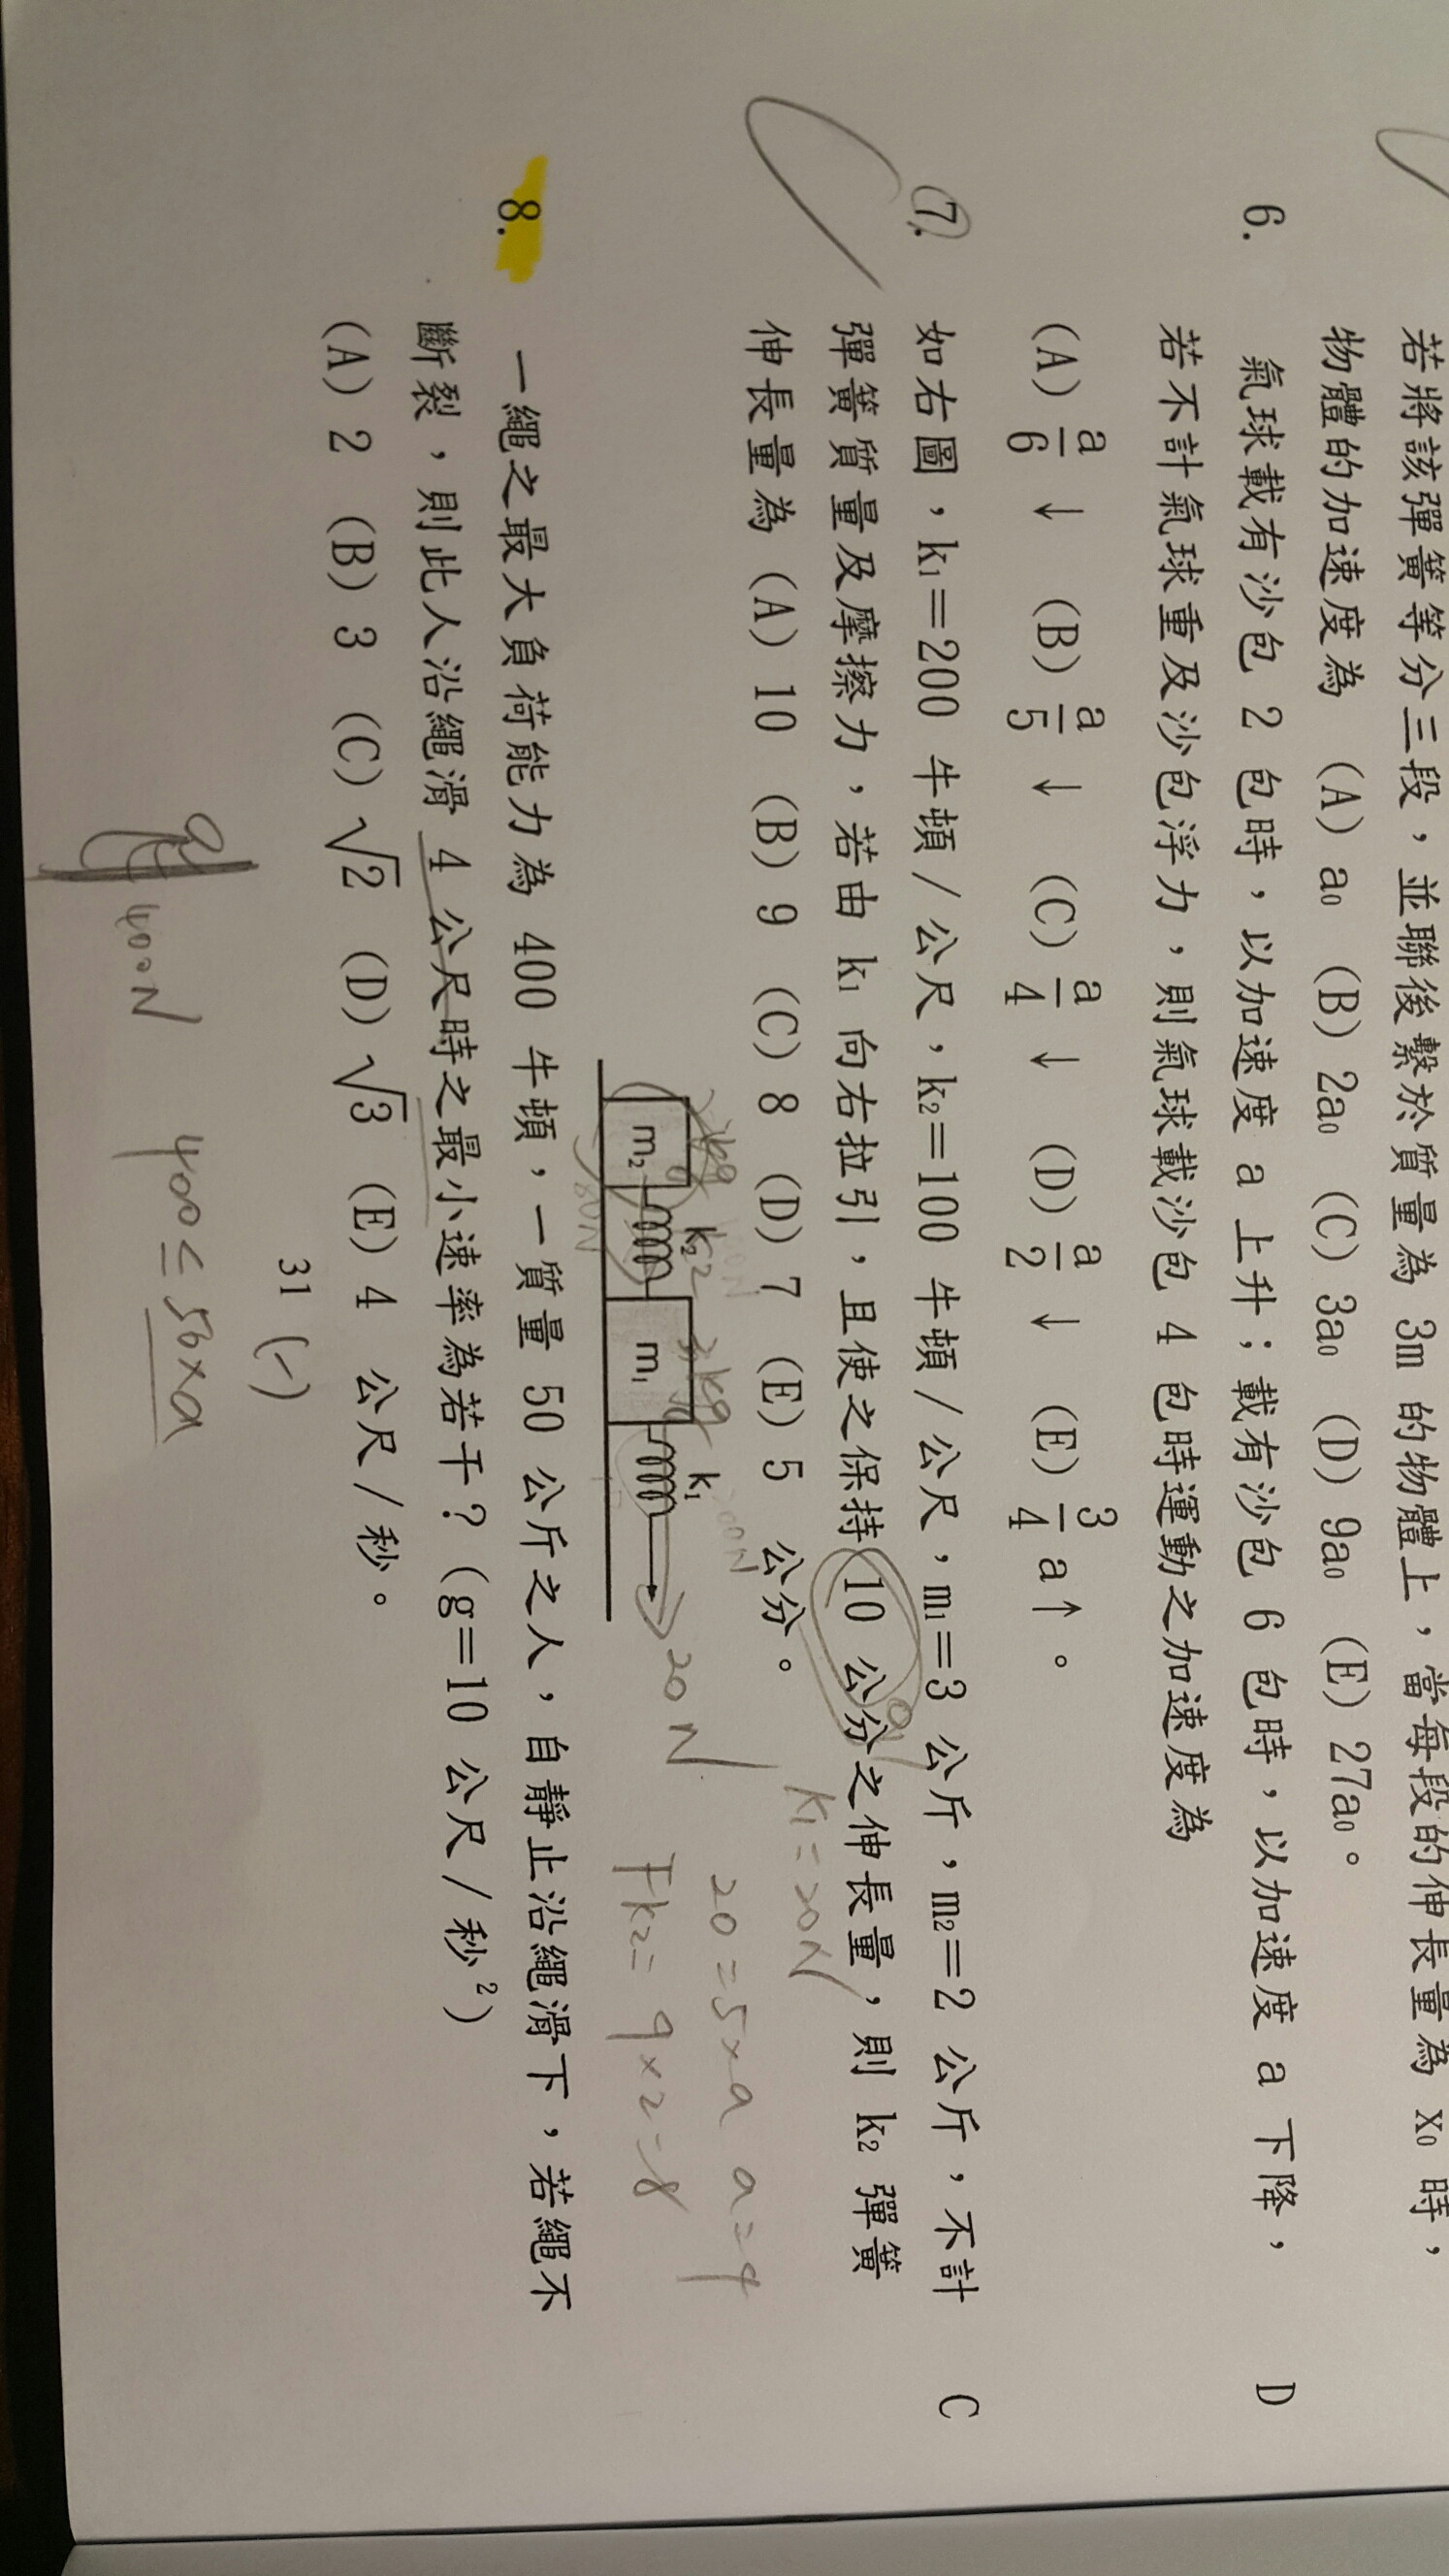 若將該彈簧等分三段，並聯後繫於質量為 3m 的物體上，當每段的伸長量為 x₀ 時，
物體的加速度為 (A) a₀ (B) 2a₀ (C) 3a₀ (D) 9a₀ (E) 27a₀。
6. 氣球載有沙包 2 包時，以加速度 a 上升；載有沙包 6 包時，以加速度 a 下降， D
若不計氣球重及沙包浮力，則氣球載沙包 4 包時運動之加速度為
(A) a/6 ↓ (B) a/5 ↓ (C) a/4 ↓ (D) a/2 ↓ (E) 3/4 a↑。
7. 如右圖，k₁＝200 牛頓／公尺，k₂＝100 牛頓／公尺，m₁＝3 公斤，m₂＝2 公斤，不計 C
彈簧質量及摩擦力，若由 k₁ 向右拉引，且使之保持 10 公分之伸長量，則 k₂ 彈簧
伸長量為 (A) 10 (B) 9 (C) 8 (D) 7 (E) 5 公分。
k₁=20N
m₂ k₂ m₁ k₁
20N
20=5×a a=4
Fk2= 4×2=8
8. 一繩之最大負荷能力為 400 牛頓，一質量 50 公斤之人，自靜止沿繩滑下，若繩不
斷裂，則此人沿繩滑 4 公尺時之最小速率為若干？(g＝10 公尺／秒²)
(A) 2 (B) 3 (C) √2 (D) √3 (E) 4 公尺／秒。
31 (一)
400N
400≤50×a